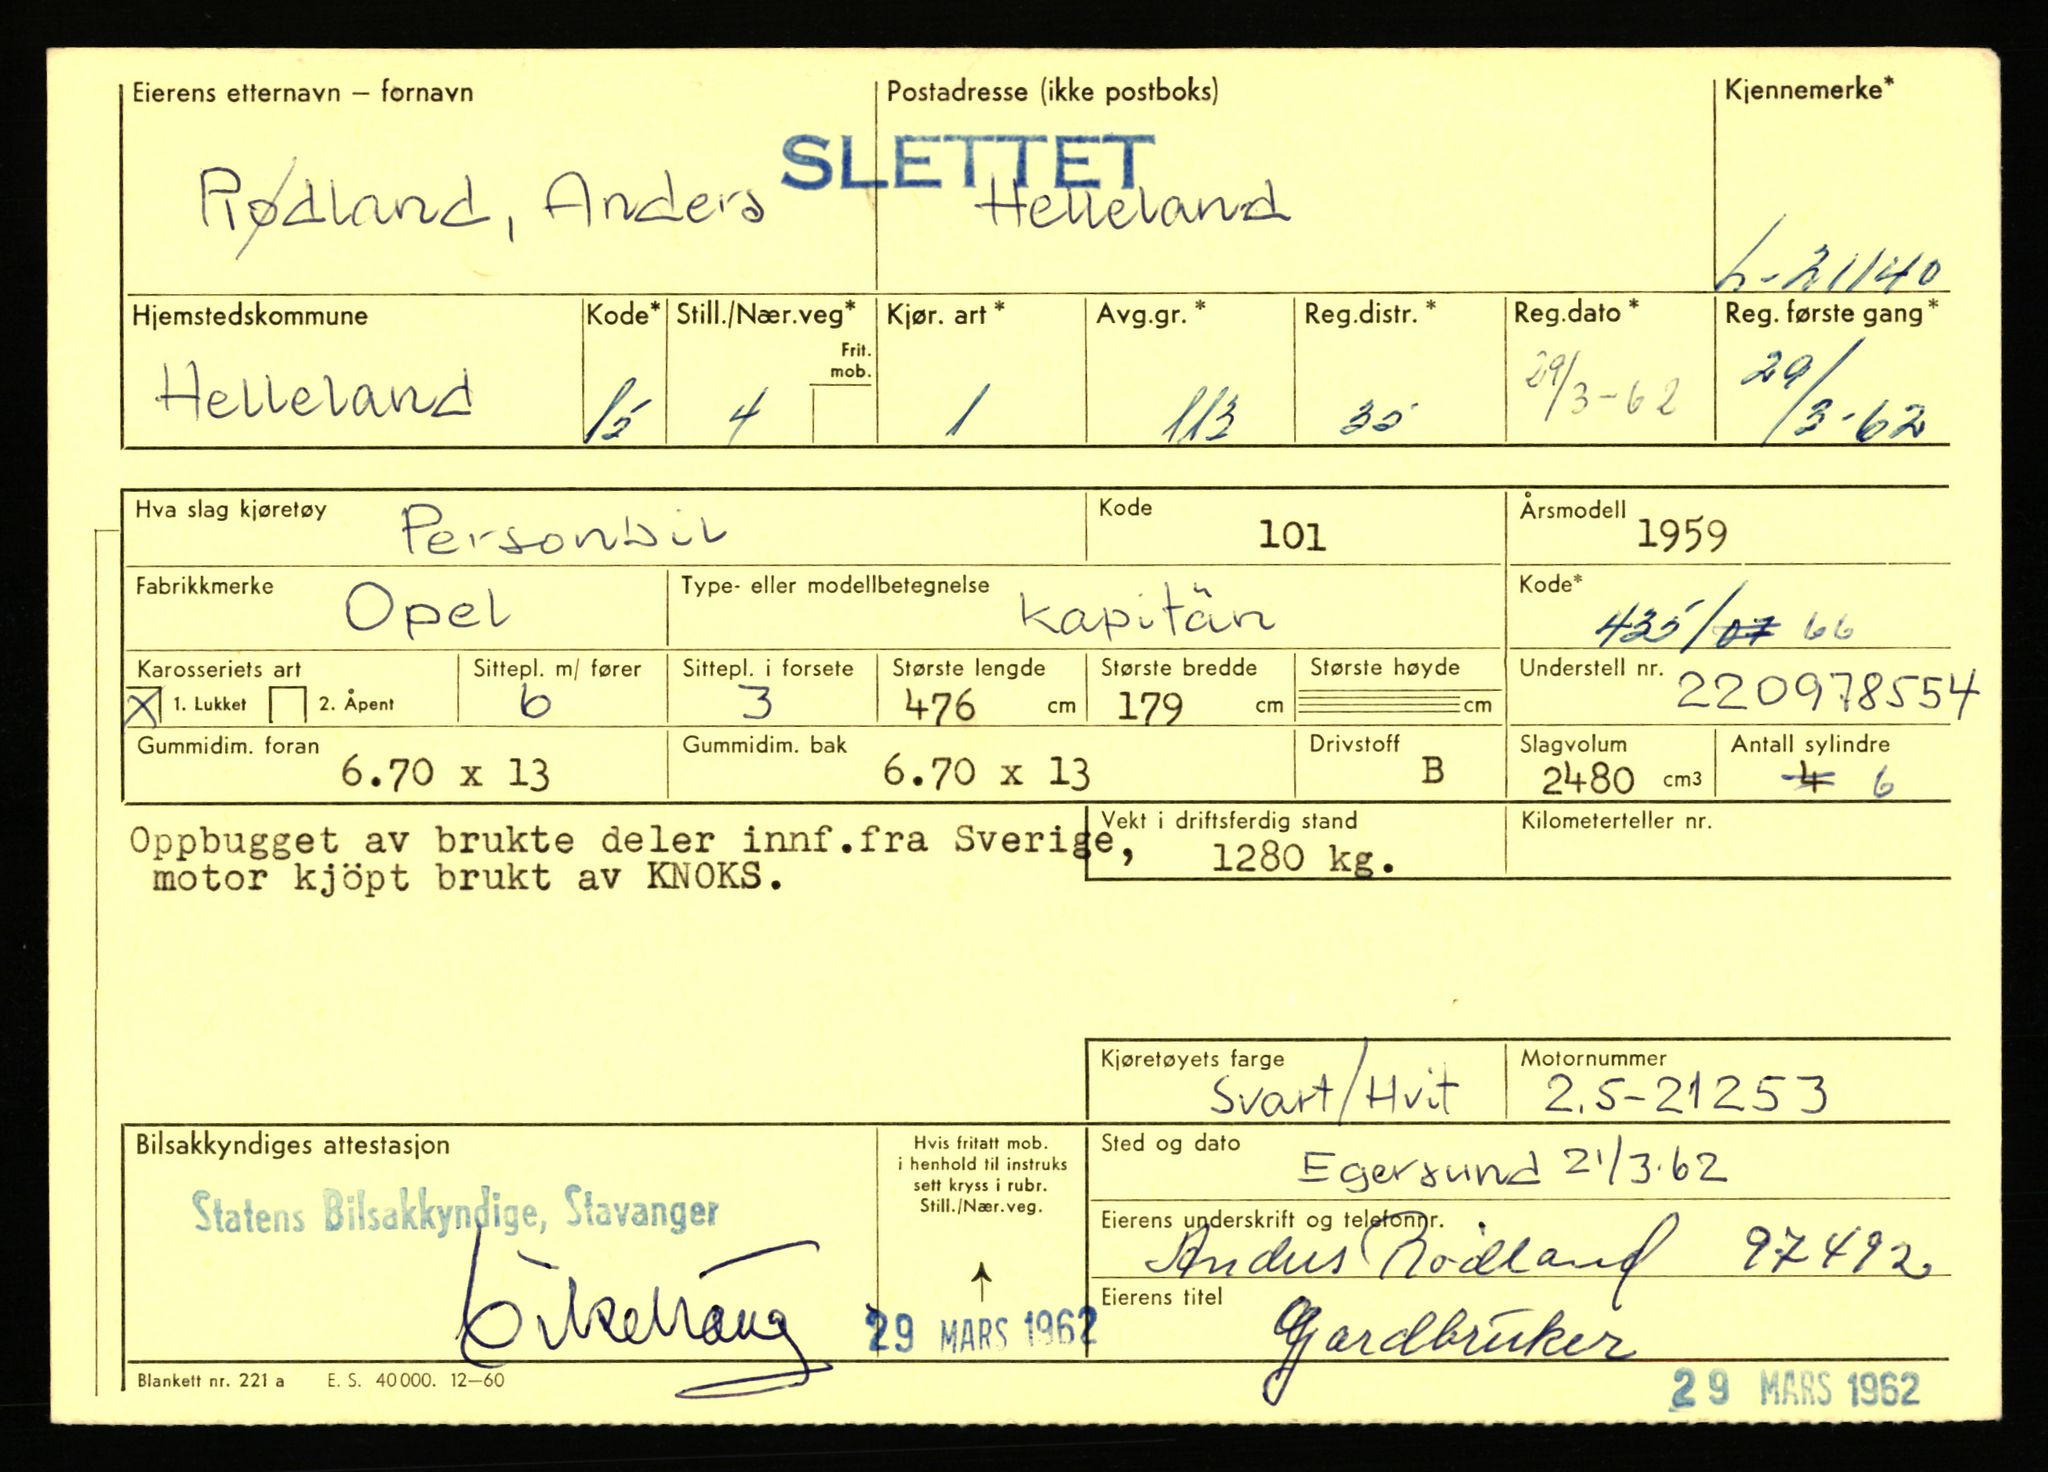 Eierens etternavn – fornavn Postadresse (ikke postboks) Kjennemerke*
SLETTET
Rødland, Anders Helleland
L-21140
Hjemstedskommune Kode* Still./Nær.veg* Kjør. art* Avg.gr.* Reg.distr.* Reg.dato* Reg. første gang*
Frit.
mob.
Helleland 15 4 1 113 35 29/3-62 29/3-62
Hva slag kjøretøy Personbil Kode 101 Årsmodell 1959
Fabrikkmerke Opel Type- eller modellbetegnelse Kapitän Kode* 435/07 66
Karosseriets art Sittepl. m/ fører Sittepl. i forsete Største lengde Største bredde Største høyde Understell nr. 220978554
X 1. Lukket 2. Åpent 6 3 476 cm 179 cm cm
Gummidim. foran Gummidim. bak Drivstoff Slagvolum Antall sylindre
6.70 x 13 6.70 x 13 B 2480 cm3 4 6
Vekt i driftsferdig stand Kilometerteller nr.
Oppbugget av brukte deler innf.fra Sverige, 1280 kg.
motor kjöpt brukt av KNOKS.
Kjøretøyets farge Motornummer
Svart/Hvit 2,5-21253
Bilsakkyndiges attestasjon Hvis fritatt mob. Sted og dato
i henhold til instruks Egersund 21/3.62
sett kryss i rubr.
Still./Nær.veg.
Statens Bilsakkyndige, Stavanger
Eierens underskrift og telefonnr.
Anders Rödland 97492
Eierens titel
29 MARS 1962 Gardbruker
Blankett nr. 221 a E. S. 40000. 12–60
29 MARS 1962